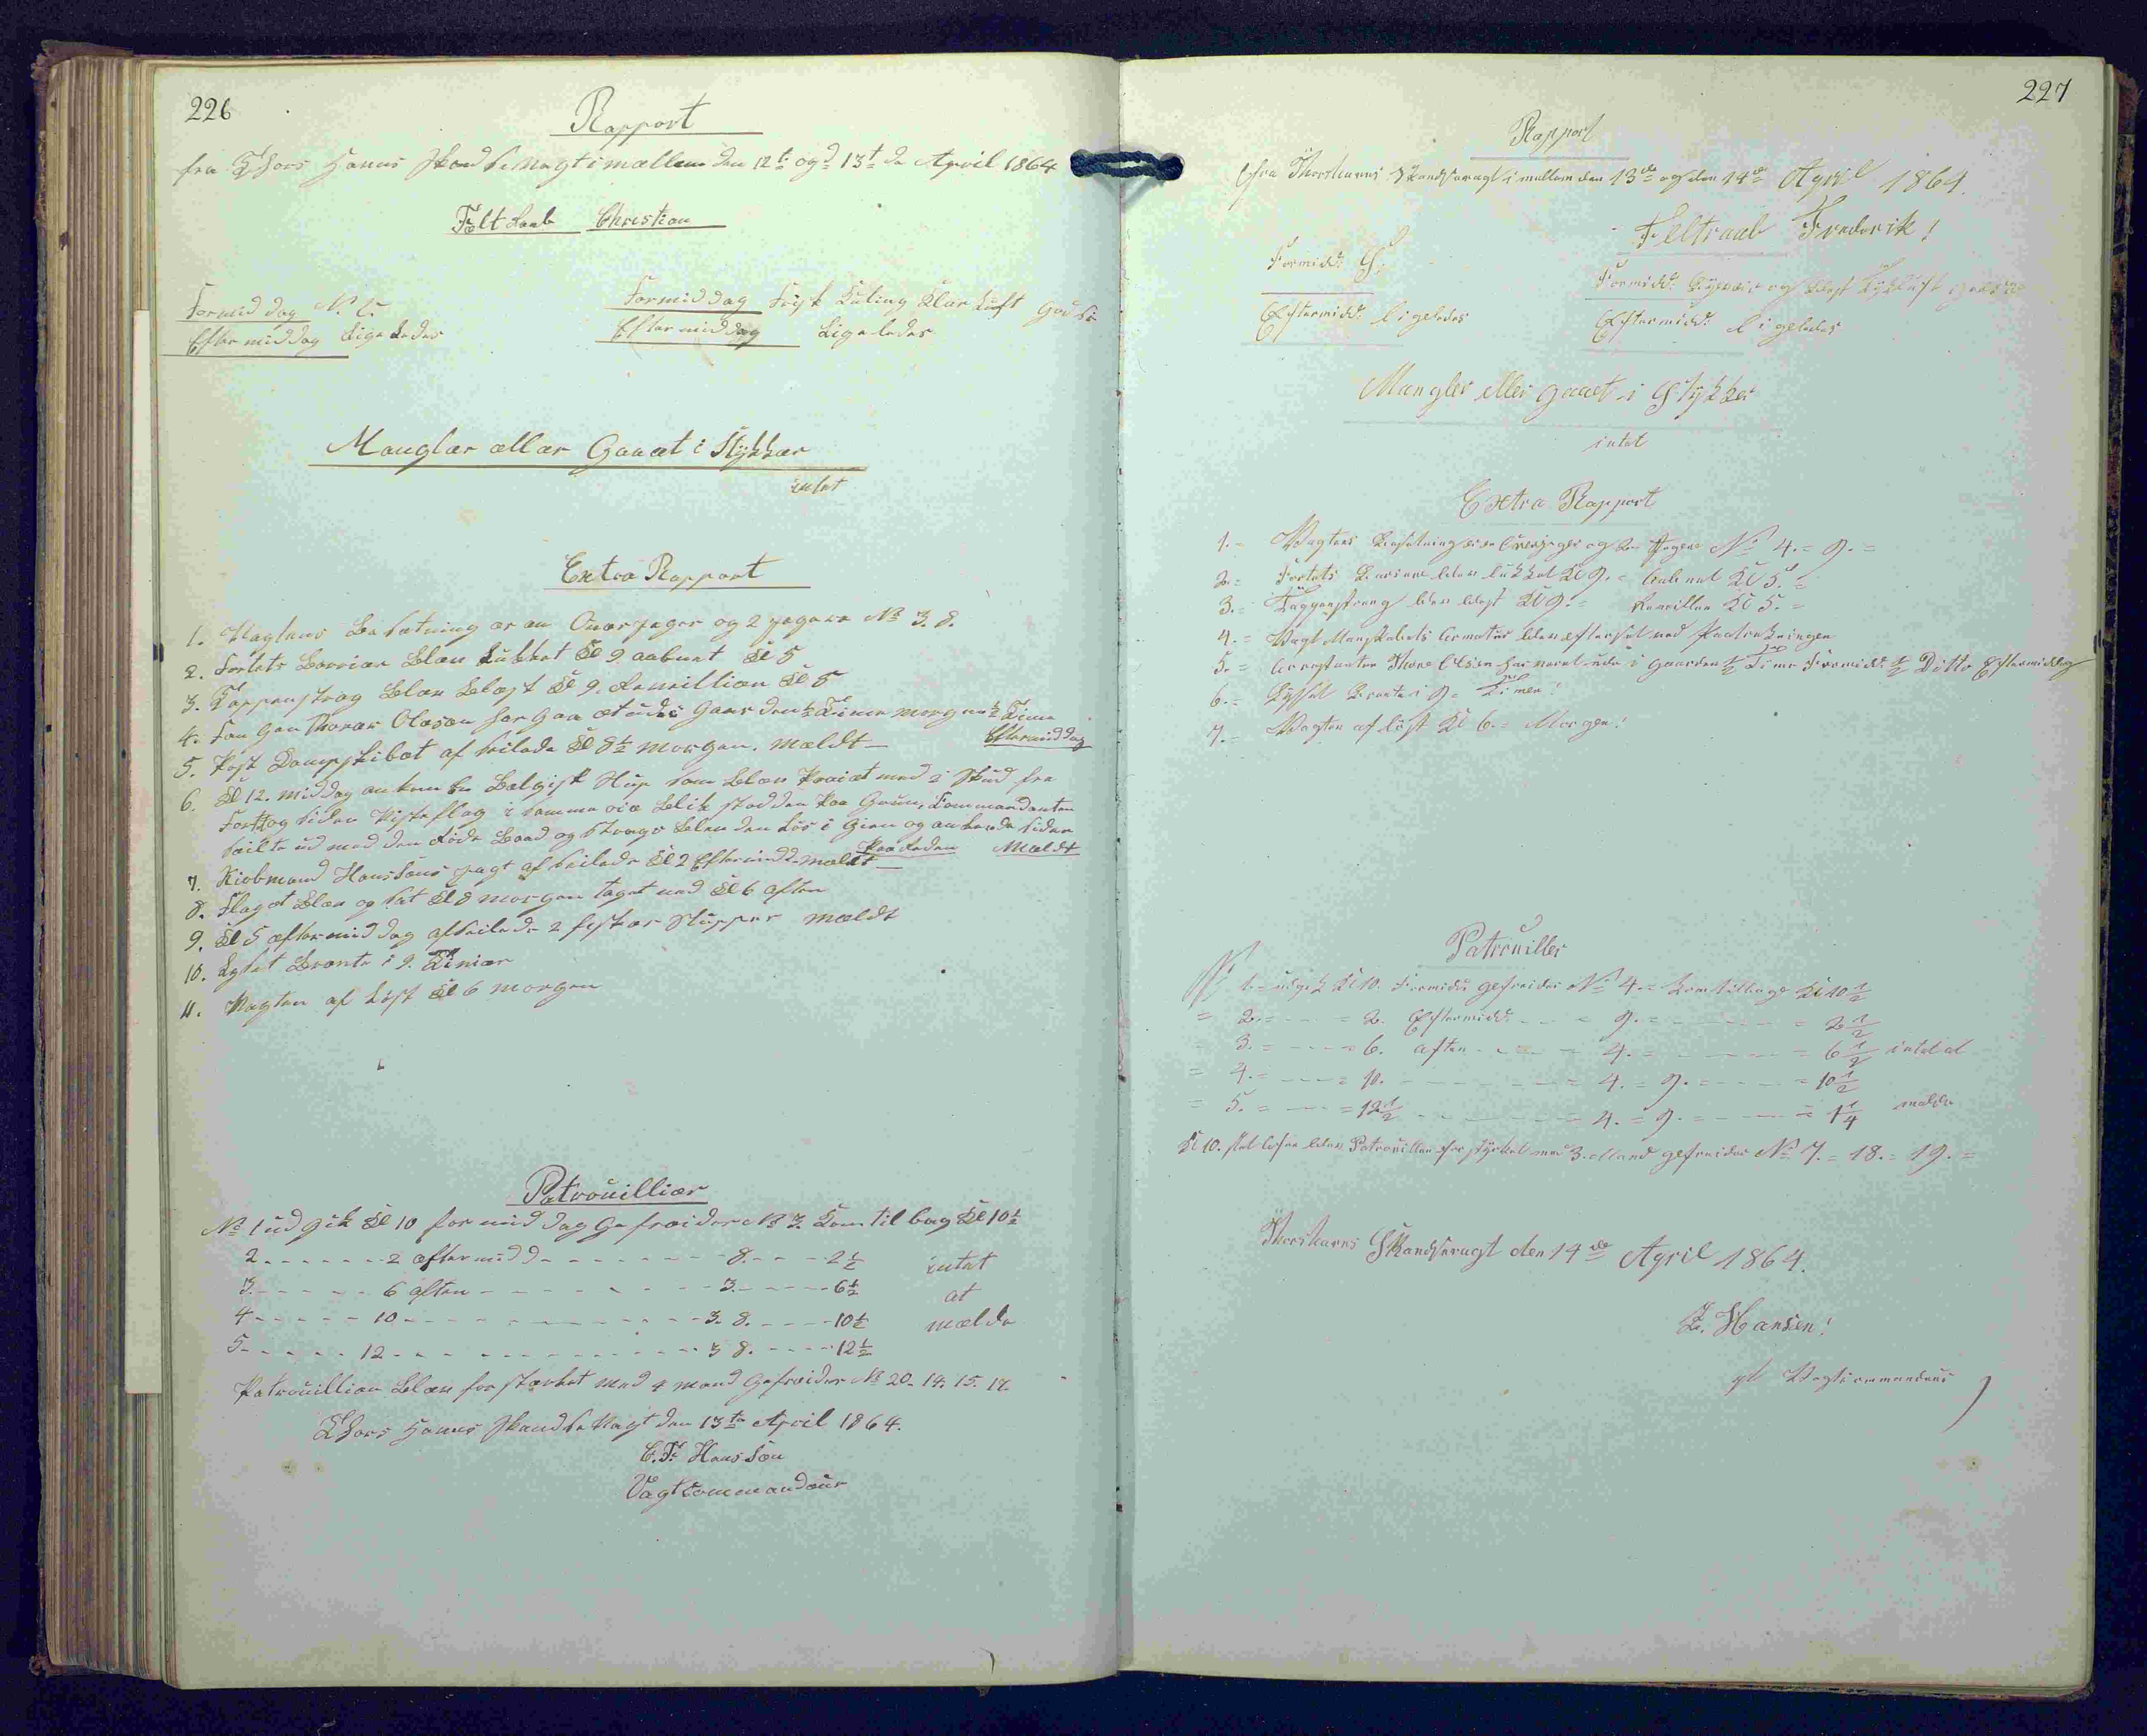 226
Rapport
fra Thors Havns Skandse Vagt imællem den 12te og d 13t de April 1864
Fælt Raab Christian
Formiddag N. O. Formiddag Frisk Kuling Klar Luft god Si
Eftermiddag Ligeledes Eftermiddag Ligeledes
Manglær ællær Gaaæt i Stÿkkær
intet
Extra Rapport
1. Vagtens Besætning ær æn Overjæger og 2 jægere No 3. 8.
2. Fortets Barriær blæv Lukket Kl 9. aabnet Kl 5
3. Tappenstræg blæv blæst Kl 9. Revæillien Kl 5
4. Fangen Thorær Olæsøn har Gaaæt ude i Gaarden ½ Time morgen ½ Time
Eftermiddag
5. Post Dampskibet af seilede Kl 8½ morgen. mældt
6. Kl 12. middag ankom en Bælgisk Slup som blæv Praiæt med 2 Skud fra
Forttog siden Gisteflag i samme øieblik stod den Paa Grun, Commandanten
seilte ud med den Røde Baad og strags blev den Løs i Gien og ankrede siden
Paa Reden Mældt
7. Kiøbmand Hanssøns jagt af seilede Kl 2 Eftermidd. mældt
8. Flaget blæv og sat Kl 8 morgen taget ned Kl 6 aften
9. Kl 5 æftermiddag afseilede 2 fisker Slupper mældt
10. Lyset Brænte i 9. Timær
11. Vagten af Løst Kl 6 morgen
Patrouilliær
No 1 udgik Kl 10 formiddag Gefræider No 3. Kom tilbag Kl 10½
2 - - - - 2 æftermidd - - - - 8. - - 2½ intet
3. - - - - 6 aften - - - - 3. - - - 6½ at
4 - - - - 10 - - - - 3. 8. - - - 10½ mælde
5 - - - - 12 - - - - 3 8. - - - 12½
Patrouillien blæv forstærket med 4 mand Gefræider No 20. 14. 15. 17.
Thors Havns Skandse Vagt den 13te April 1864.
C. F. Hanssøn
Vagtcommandøur
227
Rapport
Fra Thorshavns Skandsevagt imellem den 13de og den 14de April 1864.
Feltraab Frederik!
Formidd: S.
Eftermidd: Ligeledes Eftermidd: Ligeledes
Mangler eller gaaet i Stÿkker
intet
Extra Rapport
1. = Vagtens Besætning er en Overjæger og 2 Jægere No 4. = 9. =
2. = Fortets Barriere blev lukket Kl 9. = aabnet Kl 5. =
3. = Tappenstreeg blev blæst Kl 9. = Reveillen Kl 5. =
4. = Vagt Mandskabets Armatur blev efterset ved
5. = Arrestanten Thore Olsen har været ude i Gaarden ½ Time Formidd: ½ Ditto Eftermiddag
6. = Lÿset Brænte i 9 = Timer!
7. = Vagten afløst Kl 6. = Morgen!
Patrouiller
No 1. = udgik Kl 10. Formidd: gefreider No 4. = kom tilbage Kl 10½
= 2. = - - = 2. Eftermidd: - - = 9. = - - = 2½
3. = - - = 6. aften - - = 4. = - - = 6½ intet at
= 4. = - - = 10. - - = 4. = 9. = - - = 10½
= 5. = - - = 12½ - - = 4. = 9. = - - = 1¼ melde
Kl 10. blev Patrouillen forstÿrket med 3. Mand gefreider No 7. = 18. = 19. =
Thorshavns Skandsevagt den 14de April 1864.
Z. Hansen!
Vagtcommandeur